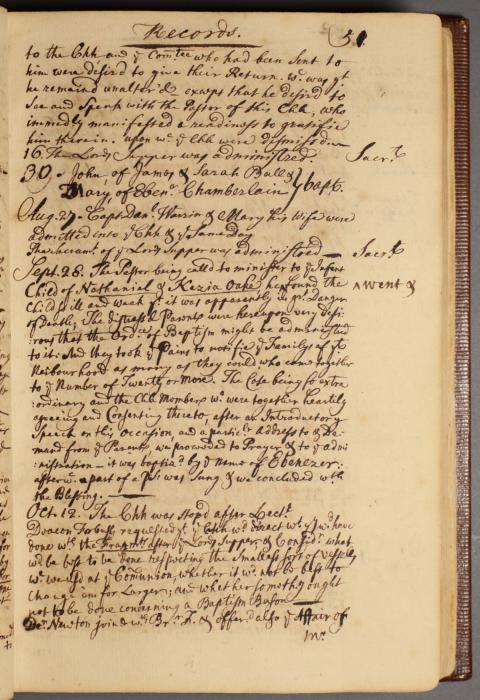 Records.
51.
to the Chh and ye Comtee who had been sent to
him were desir'd to give their Return. wc was yt
he remain'd unalter'd except that he desir'd to
see and speak with the Pastor of this Chh, who
immedly manifested a readiness to gratifie
him therein. upon wc ye Chh were dismiss'd.
16. The Lords Supper was administred. Sacrt
30. John, of James & Sarah Ball &
Mary, of Ebenr Chamberlain } bapt.
Aug. 27. Capt. Danl Warrin & Mary his Wife were
admitted into ye Chh & ye Same Day
The Sacramt of ye Lords Supper was administred Sacrt
Sept. 28. The Pastor being call'd to minister to ye Infant
Child of Nathanial & Kezia Oake, he ^ found the ^ went &
Child so ill and weak yt it was apparently in gr. Danger
of Death; The distress'd Parents were hereupon very desi-
rous that the Ordce of Baptism might be administred
to it: And they took ye Pains to notifie ye Familys of ye
Neibourhood as many as they could, who came together
to ye Number of Twenty or more. The Case being so extra
:ordinary and the Chh Members wo were together heartily
agreeing and Consenting thereto, after an Introductory
Speech on this Occasion and a particr Address to & De-
mand from ye Parents, we proceeded to Prayer & to ye admi
:nistration - it was baptiz'd by ye Name of Ebenezer:
afterw. a part of a Ps. was Sung & we concluded wth
the Blessing.
Oct. 12. The Chh was Stop'd after Lectr
Deacon Forbush requested yt ye Chh wd direct wt yy wd have
done wth the Fragmts after ye Lords Supper, & Consid. what
wd be best to be done respecting the smallest sort of vessels
wc we us'd at ye Comunion, whether it wd not be best to
change em for Larger; and whether somethg ought
not to be done concerning a Baptism Bason
Dn. Newton joind wth Br. F. & offer'd also ye Affair of
Mr